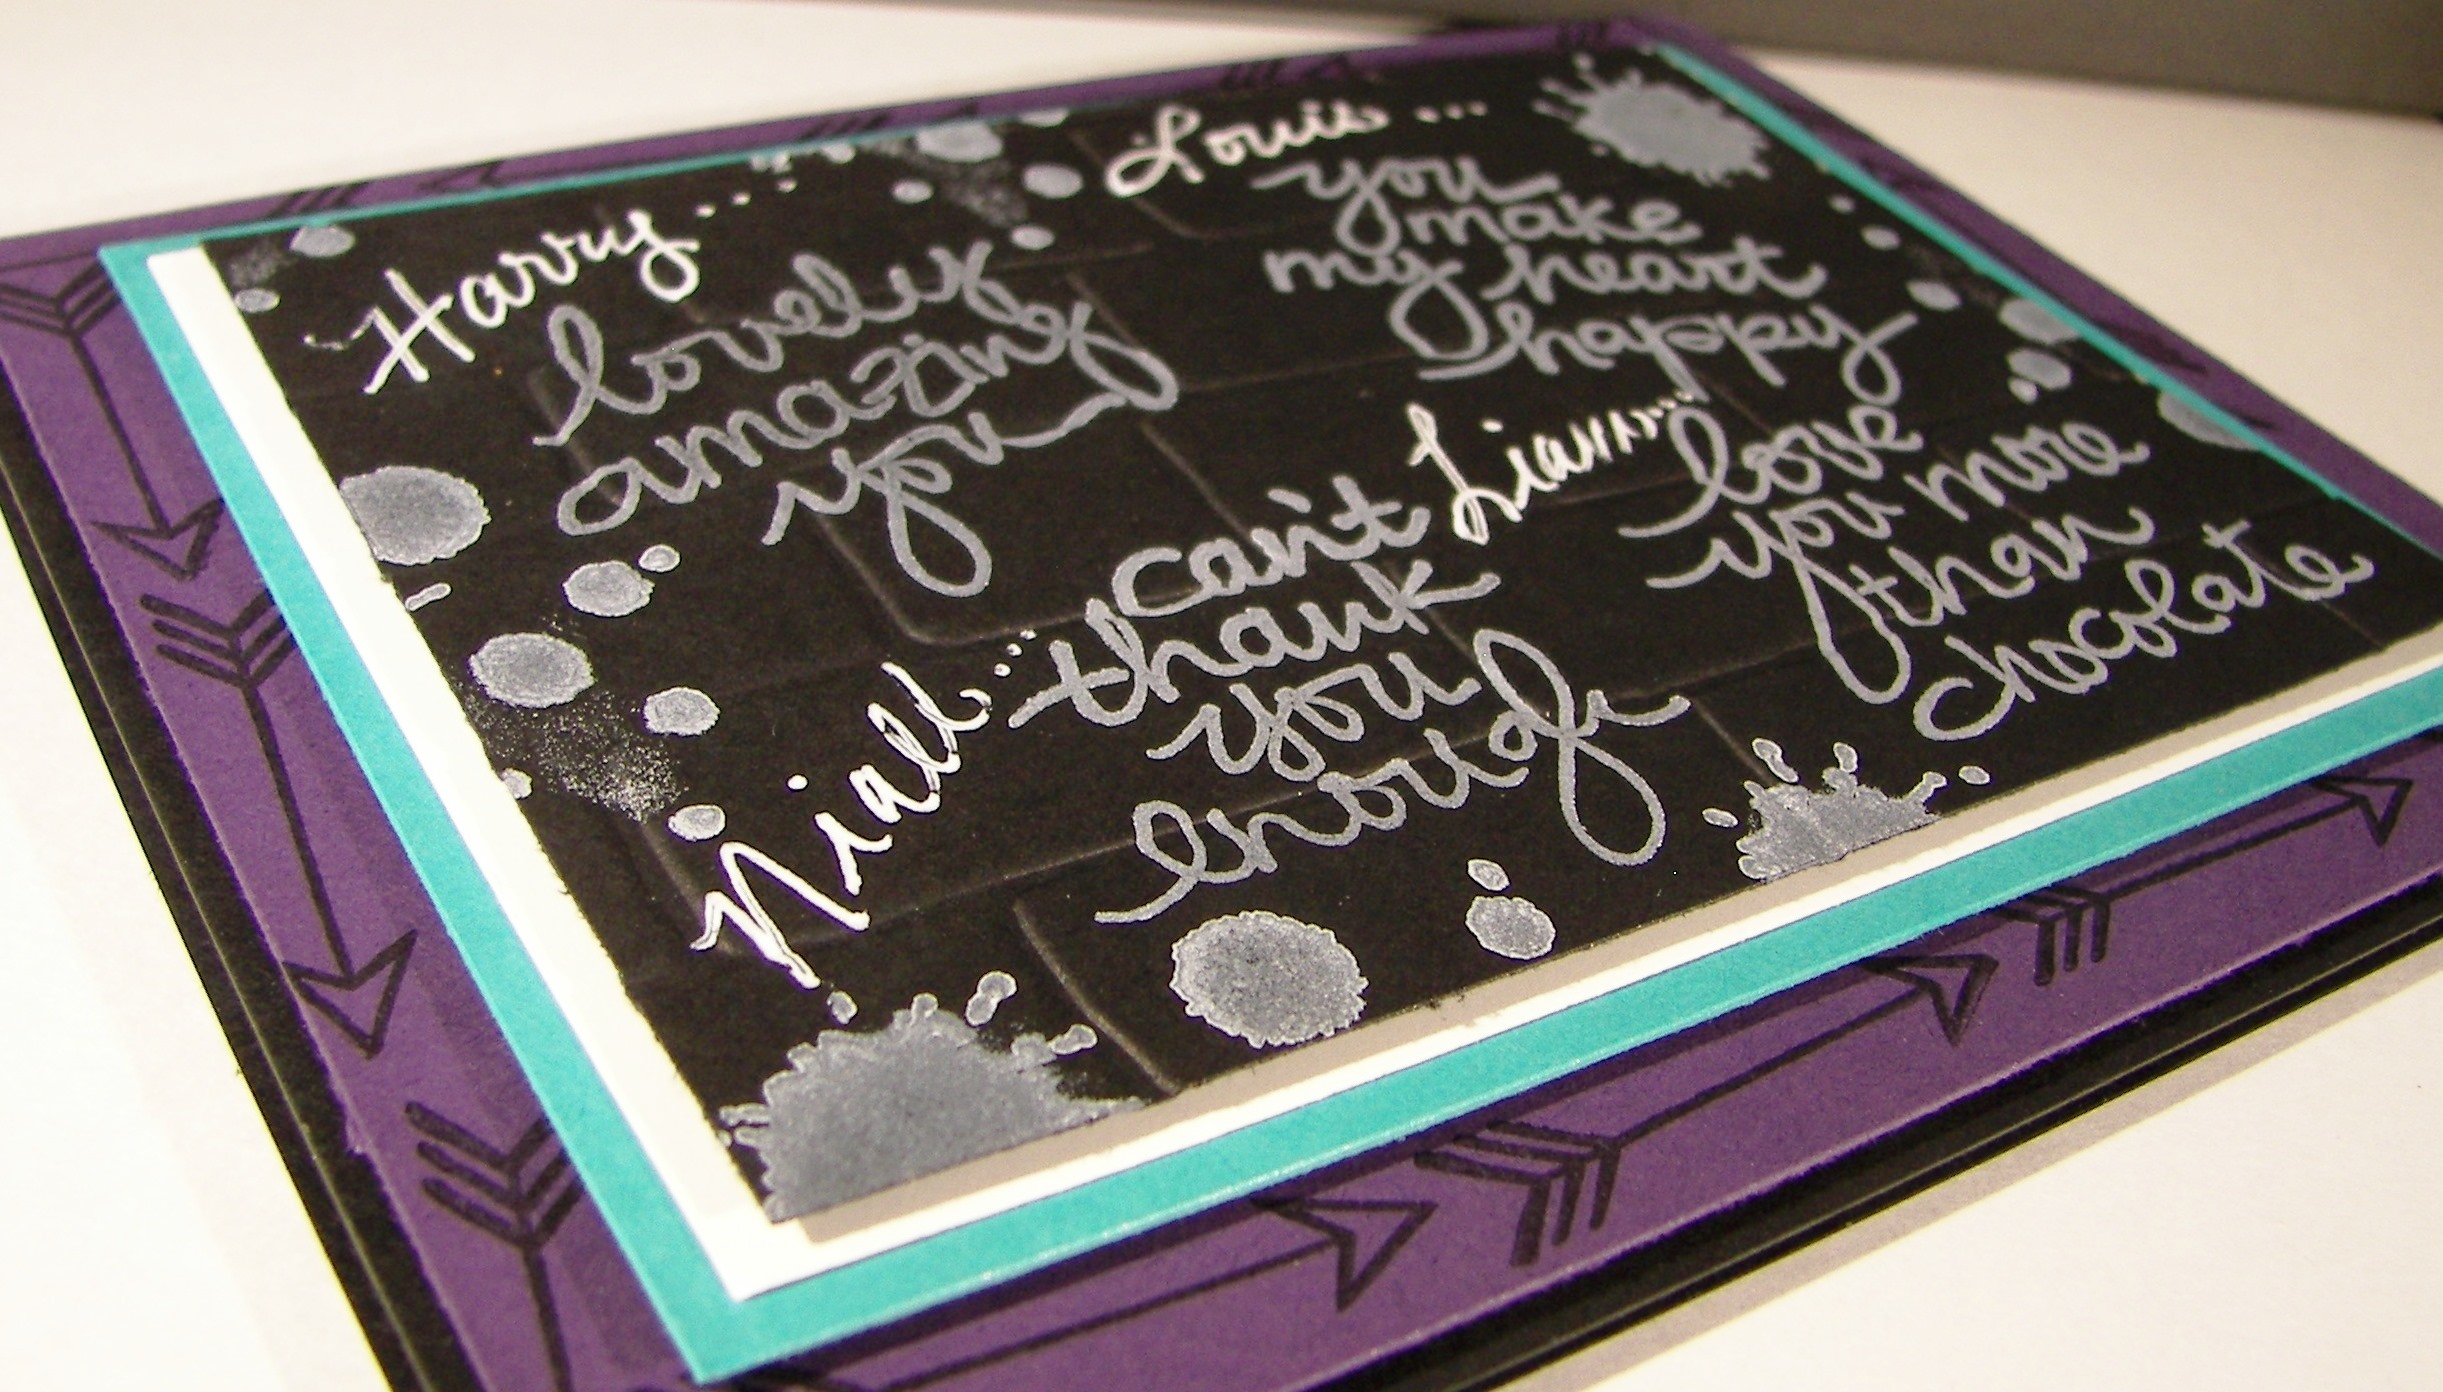 Harry...
lovely
amazing
you
Louis...
you
make
my heart
happy
Niall...
can't
thank
you
enough
Liam...
love
you more
than
chocolate